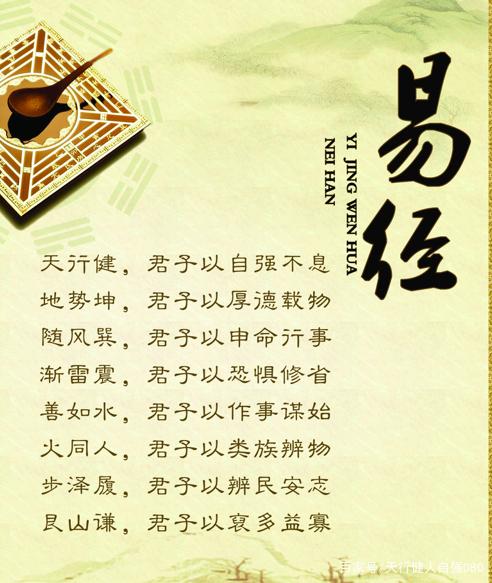 易经
YI JING WEN HUA
NEI HAN
天行健，君子以自强不息
地势坤，君子以厚德载物
随风巽，君子以申命行事
渐雷震，君子以恐惧修省
善如水，君子以作事谋始
火同人，君子以类族辨物
步泽履，君子以辨民安志
艮山谦，君子以裒多益寡
百家号/天行健人自强080